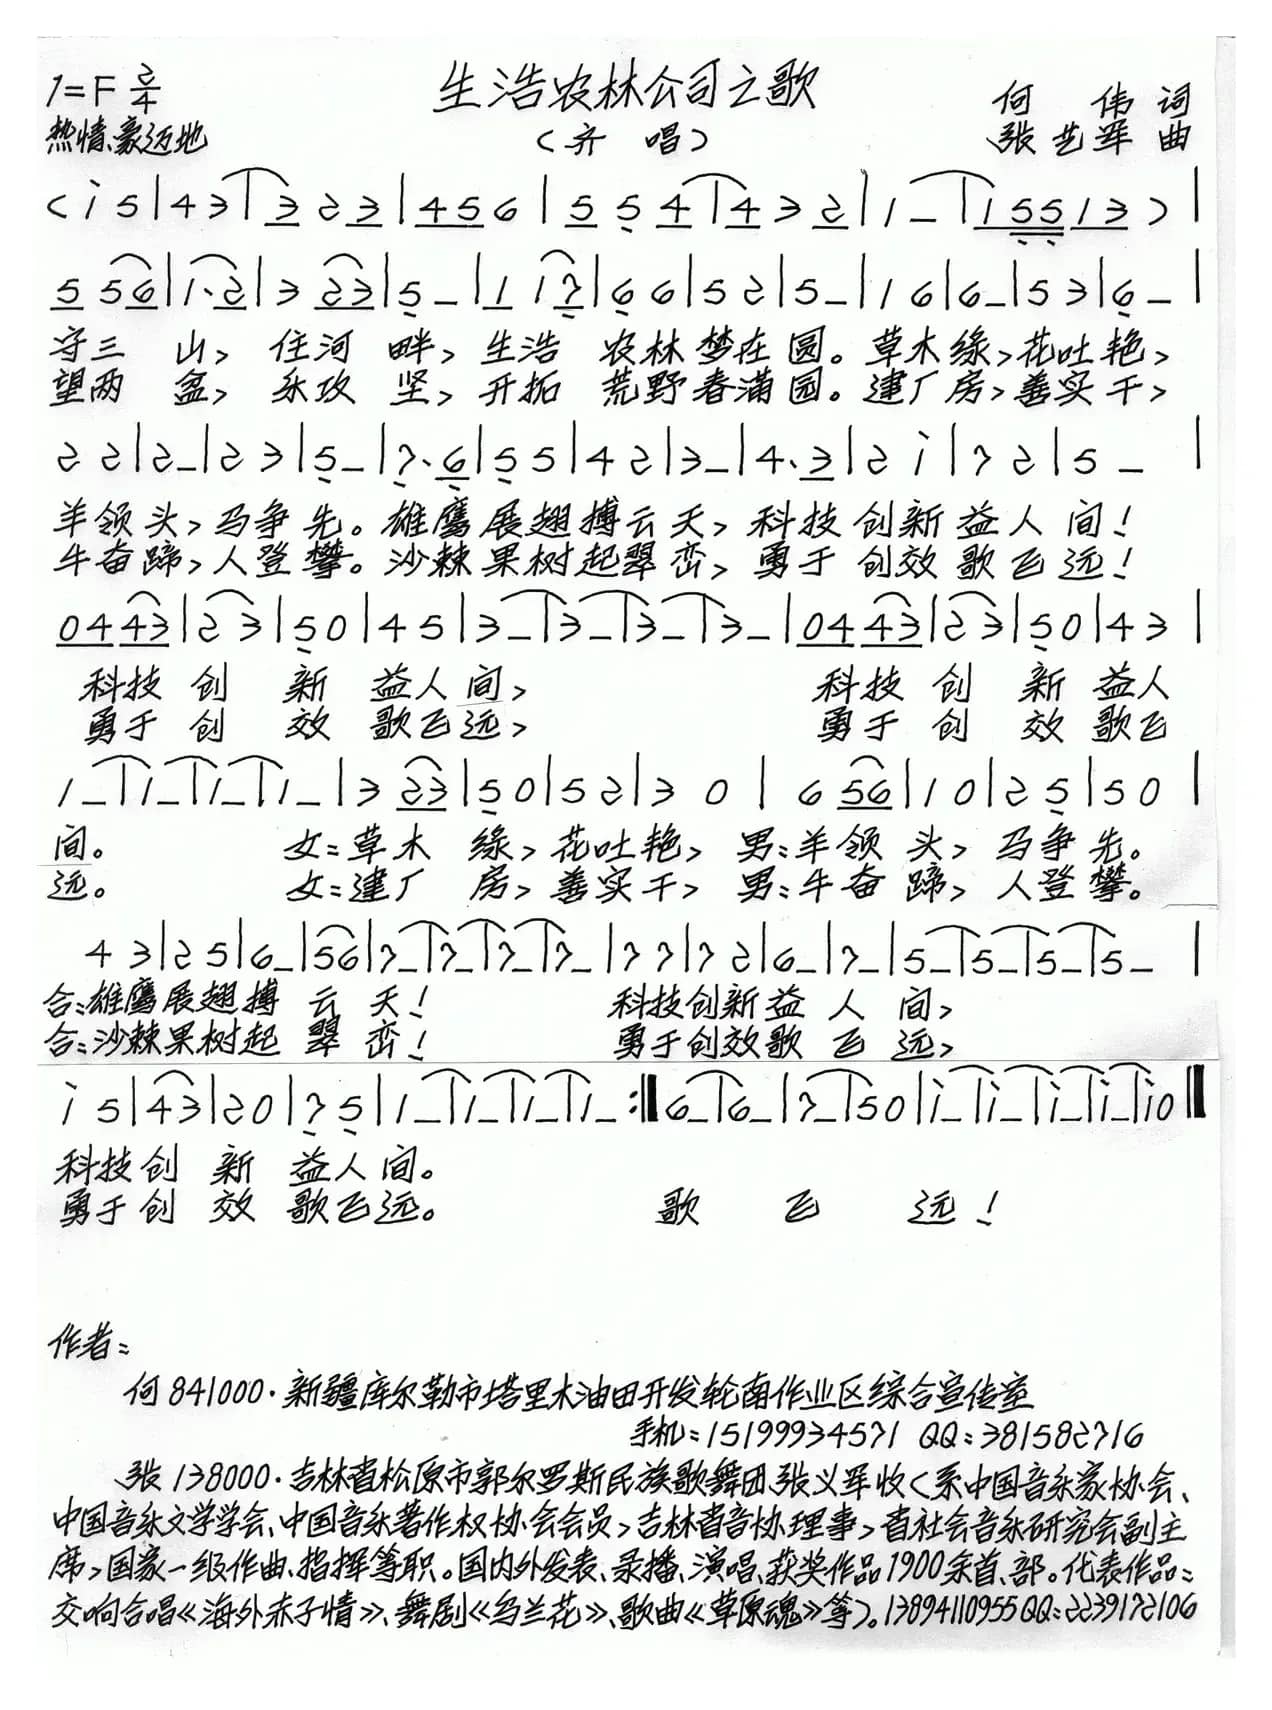 1=F 2/4
生浩农林公司之歌
何 伟 词
热情、豪迈地
（齐 唱）
张艺军 曲
< i 5 | 4 3 | 3 2 3 | 4 5 6 | 5 5 4 | 4 3 2 | 1 – | 1 5 5 1 3 > |
5 5 6 | 1 · 2 | 3 2 3 | 5 – | 1 1 7 | 6 6 | 5 2 | 5 – | 1 6 | 6 – | 5 3 | 6 – |
守三 山, 住河 畔, 生浩 农林梦在圆。草木绿, 花吐艳,
望两 盆, 永攻 坚, 开拓 荒野春满园。建厂房, 善实干,
2 2 | 2 – | 2 3 | 5 – | 7 · 6 | 5 5 | 4 2 | 3 – | 4 · 3 | 2 i | 7 2 | 5 – |
羊领头, 马争先。雄鹰展翅搏云天, 科技创新益人间!
牛奋蹄, 人登攀。沙棘果树起翠峦, 勇于创效歌飞远!
0 4 4 3 | 2 3 | 5 0 | 4 5 | 3 – | 3 – | 3 – | 3 – | 0 4 4 3 | 2 3 | 5 0 | 4 3 |
科技 创 新 益人间, 科技 创 新 益人
勇于 创 效 歌飞远, 勇于 创 效 歌飞
1 – | 1 – | 1 – | 1 – | 3 2 3 | 5 0 | 5 2 | 3 0 | 6 5 6 | 1 0 | 2 5 | 5 0 |
间。 女:草木 绿, 花吐艳, 男:羊领 头, 马争先。
远。 女:建厂 房, 善实干, 男:牛奋 蹄, 人登攀。
4 3 | 2 5 | 6 – | 5 6 | 7 – | 7 – | 7 – | 7 – | 7 7 | 7 2 | 6 – | 7 – | 5 – | 5 – | 5 – | 5 – |
合:雄鹰展翅搏 云 天! 科技创新益 人 间,
合:沙棘果树起 翠 峦! 勇于创效歌 飞 远,
i 5 | 4 3 | 2 0 | 7 5 | 1 – | 1 – | 1 – | 1 – :‖ 6 – | 6 – | 7 – | 5 0 | i – | i – | i – | i – | i 0 ‖
科技创 新 益人间。
勇于创 效 歌飞远。 歌 飞 远!
作者:
何841000·新疆库尔勒市塔里木油田开发轮南作业区综合宣传室
手机:15199934571 QQ:381582716
张138000·吉林省松原市郭尔罗斯民族歌舞团张义军收<系中国音乐家协会、
中国音乐文学学会、中国音乐著作权协会会员,吉林省音协理事,省社会音乐研究会副主
席,国家一级作曲、指挥等职。国内外发表、录播、演唱、获奖作品1900余首、部。代表作品:
交响合唱《海外赤子情》、舞剧《乌兰花》、歌曲《草原魂》等>。13894110955QQ:2239172106